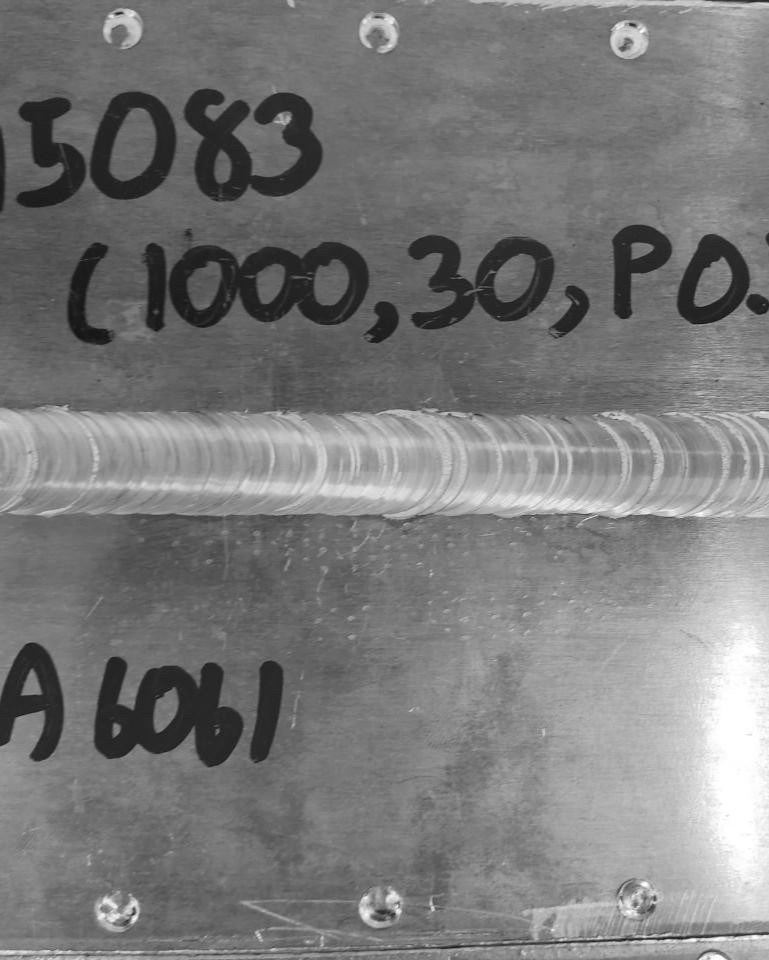 5083
(1000,30,P0.
A6061